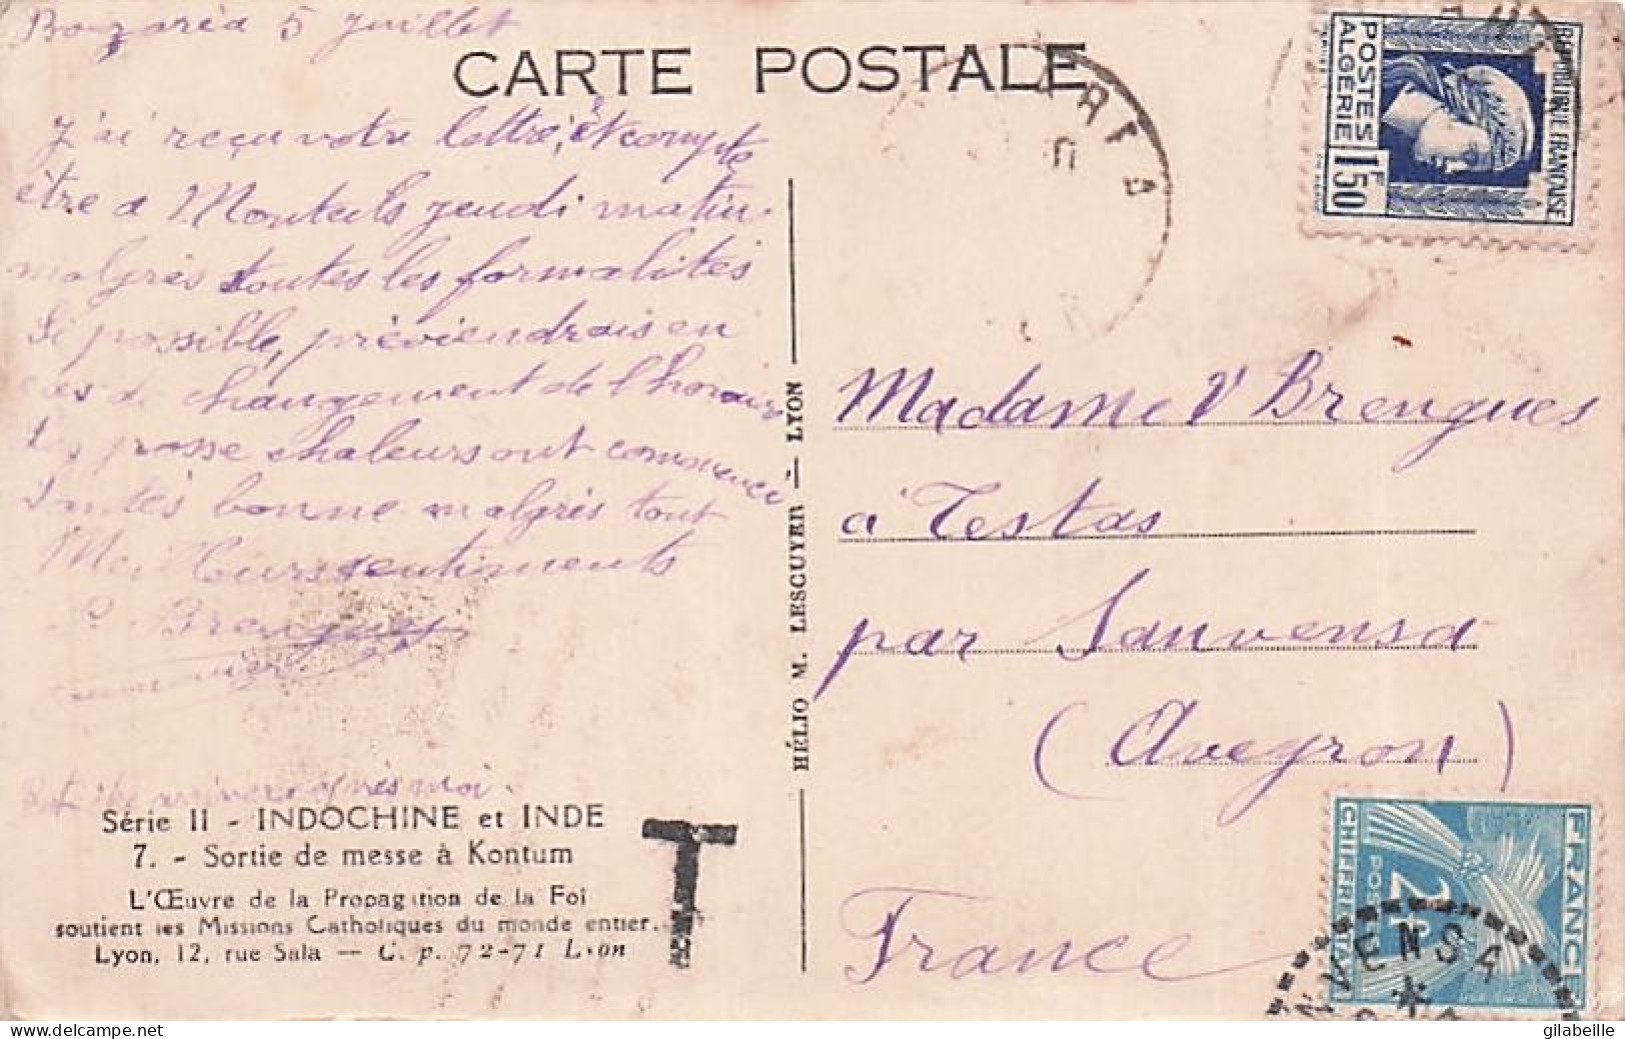 Bouzaréa 5 juillet
CARTE POSTALE
J'ai reçu votre lettre, Et compte
être a Monteils jeudi matin.
malgrès toutes les formalités
Si possible, préviendrais en
cas de changement de l'horaire
Les grosse chaleurs ont commencé
Santés bonne malgrès tout
Meilleurs sentiments
Brengues
arrivera après moi.
Série II - INDOCHINE et INDE
7. - Sortie de messe à Kontum
L'Œuvre de la Propagation de la Foi
soutient les Missions Catholiques du monde entier.
Lyon, 12, rue Sala — C. p. 72-71 Lyon
T
HÉLIO M. LESCUYER - LYON
POSTES
ALGÉRIE
1F50
REPUBLIQUE FRANÇAISE
Madame Vᵉ Brengues
à Testas
par Sanvensa
(Aveyron)
France
FRANCE
POSTES
2F
VENSA
gilabeille